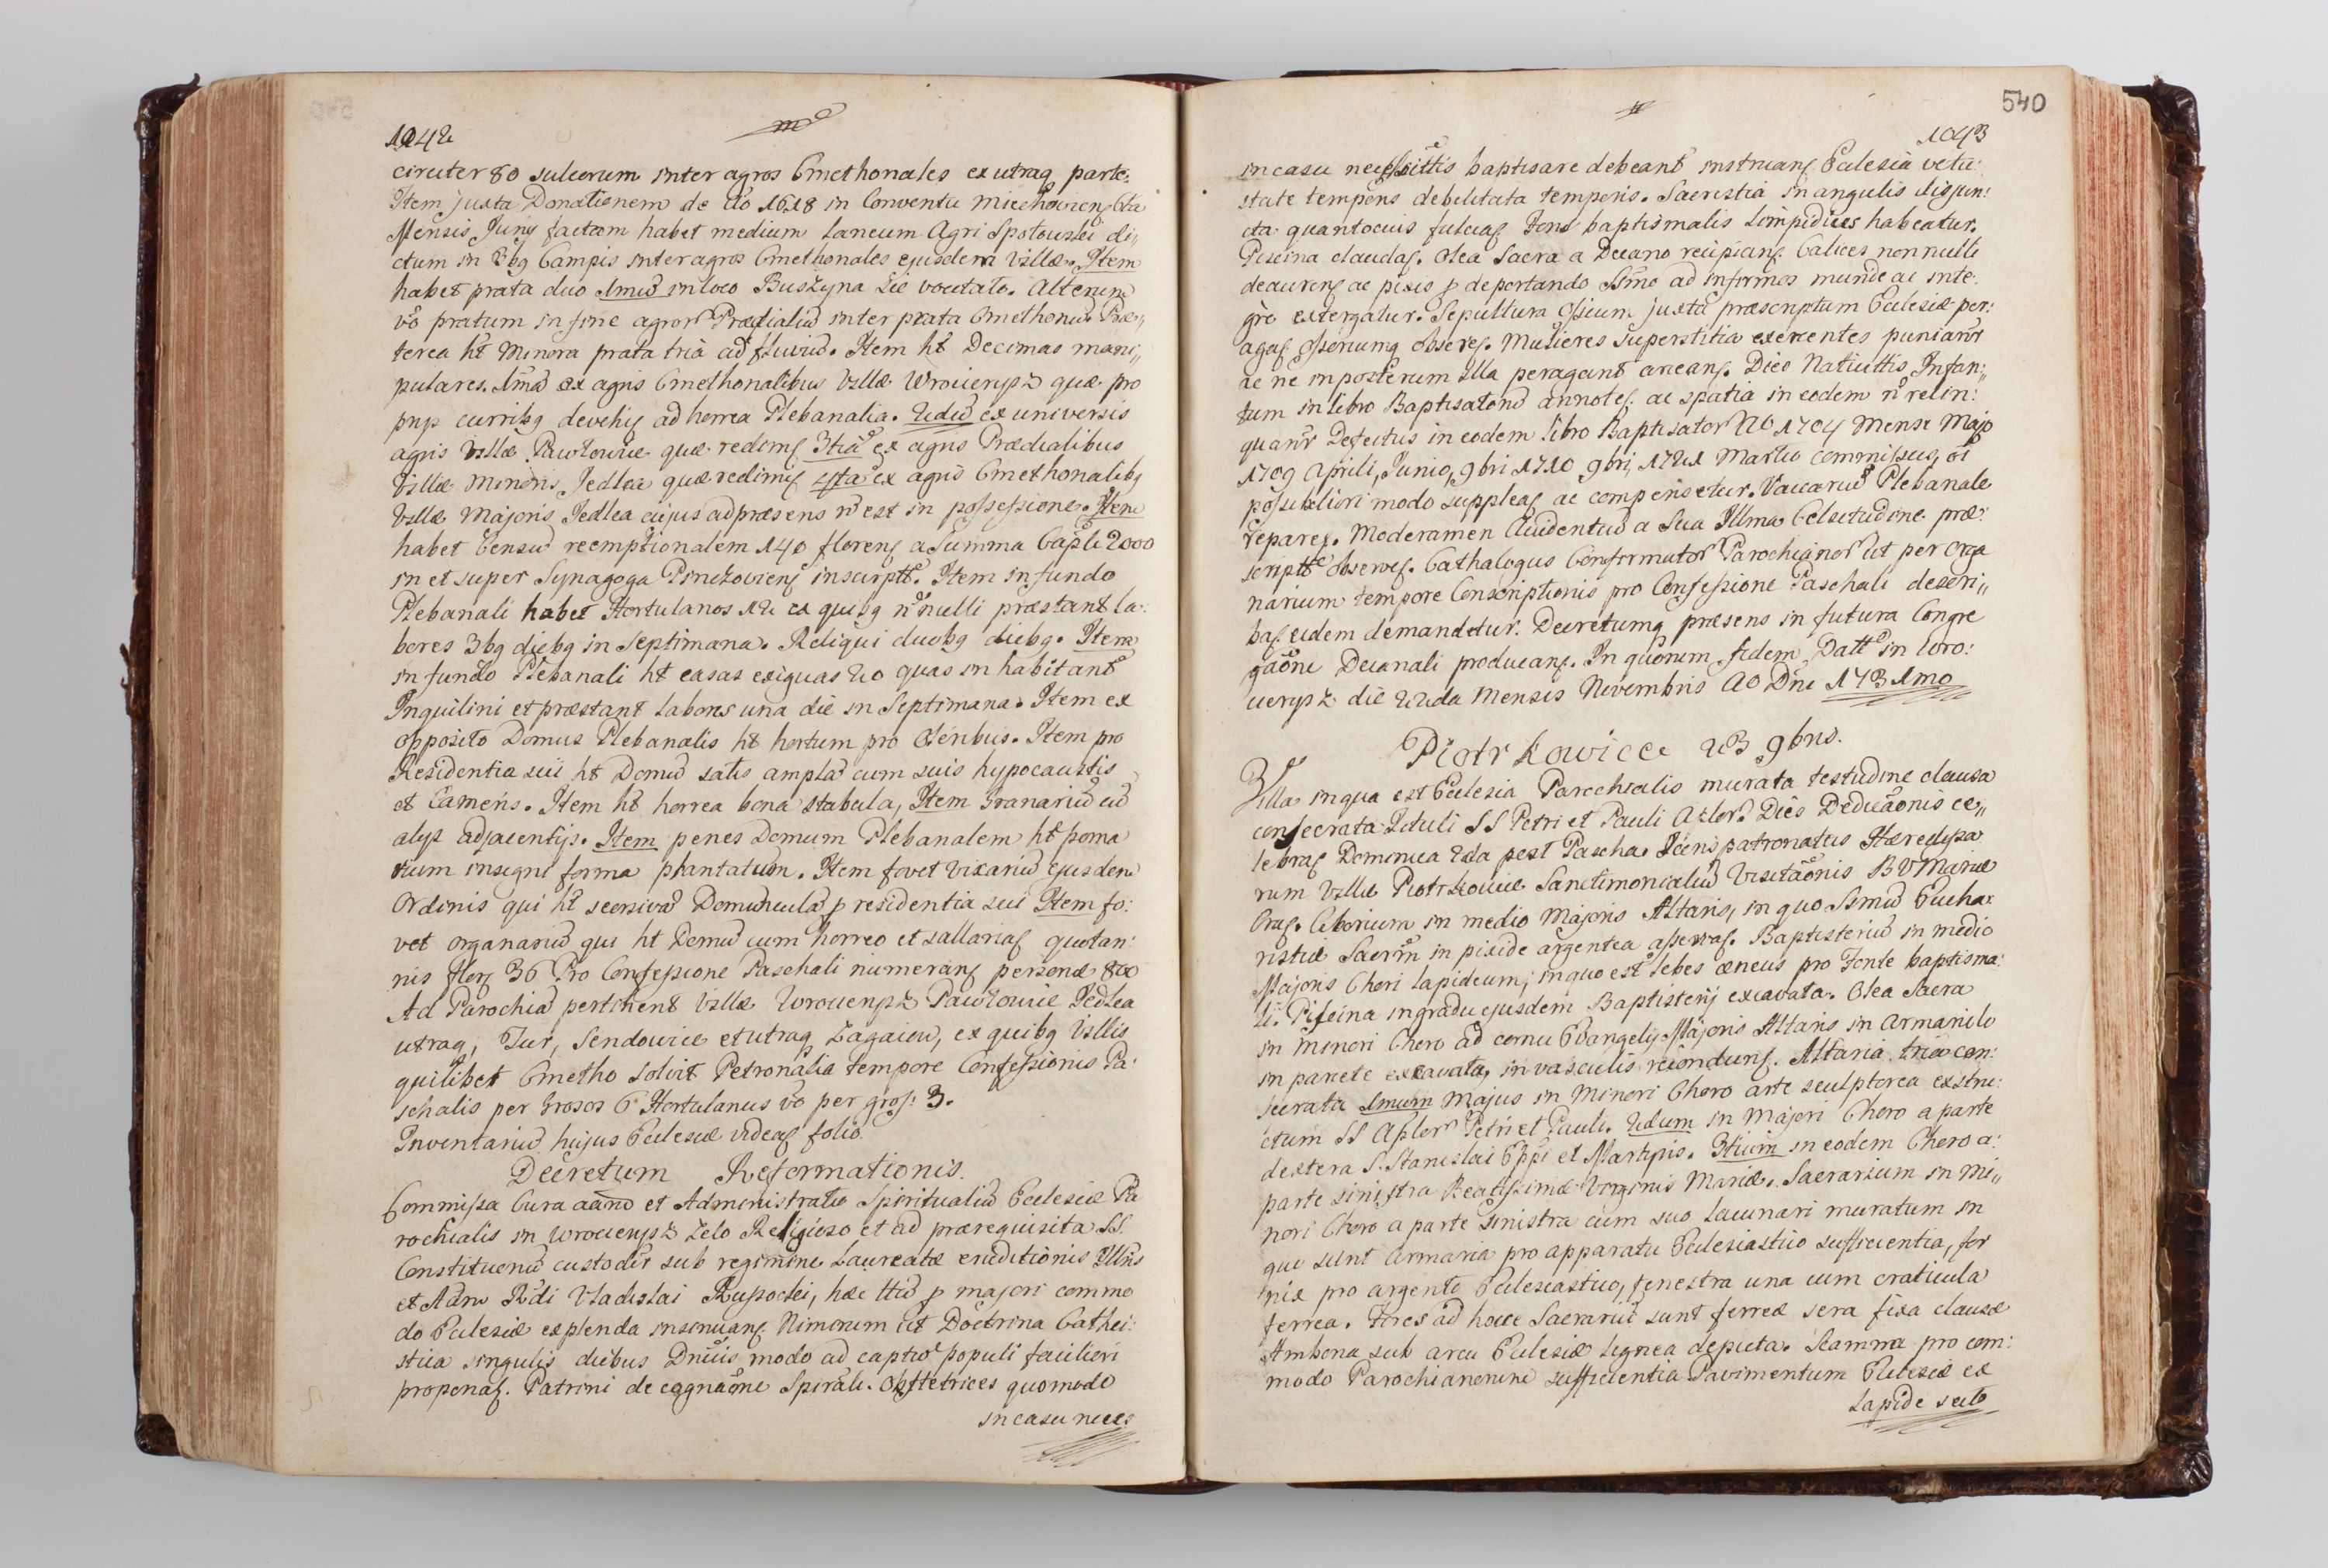 1042
circuter 80 sulcorum inter agros Cmethonales ex utraq parte.
Item juxta Donationem de ao 1618 in Conventu Miechoviens 6ta
Mensis Junij factam habet medium Laneum Agri Spotowski di„
ctum in 3bg Campis inter agros Cmethonales ejusdem Villæ. Item
habet prata duo 1mũ in loco Buszyna Łie vocitato. Alterum
vo pratum in fine agror Prædialiũ inter prata Cmethonũ. Præ„
terea ht Minora prata tria ad fluviũ. Item ht Decimas mani„
pulares. 1mã ex agris Cmethonalibus Villæ Wrocierysz quæ pro
prijs curribg devehis ad horrea Plebanalia. 2dũ ex universis
agris Villæ Pawłowice quæ redims 3tiã ex agris Prædialibus
Villæ Minoris Jedlea quæ redimis 4ta ex agris Cmethonalibg
Villæ Majoris Jedlea cujus ad præsens n est in possessione. Item
habet Censũ reemptionalem 140 florens a Summa Capli 2000
in et super Synagoga Pinczoviens inscriptt. Item in fundo
Plebanali habet Hortulanos 12 ex quibg nonulli præstant la:
bores 3bg diebg in Septimana. Reliqui duobg diebg. Item
in fundo Plebanali ht casas exiguas 20 quas inhabitant
Inquilini et præstant labores una die in Septimana. Item ex
opposito Domus Plebanalis ht hortum pro Oleribus. Item pro
Residentia sui ht Domũ satis amplã cum suis hypocaustis
et Cameris. Item ht horrea bona stabula, Item Granariũ cũ
alys adjacentijs. Item penes Domum Plebanalem ht poma
rium insigni forma plantatum. Item fovet vicariũ ejusdem
Ordinis qui ht seorsivã Domunculã p residentia sui Item fo:
vet organariũ qui ht Domũ cum horreo et sallarias quotan:
nis flor 36 Pro Confessione Paschali numerans personæ 800
Ad Parochiã pertinent Villæ Wrocierysz Pawłowice Jedlea
utraq, Tur, Sendowice et utraq Zagaiow, ex quibg Villis
quilibet Cmetho solvit Petronalia tempore Confessionis Pa:
schalis per Grosos 6 Hortulanus vo per gros: 3.
Inventariũ hujus Ecclesiæ videas folio
Decretum Reformationis.
Commissa Cura aãrũ et Administratio Spiritualiũ Ecclesiæ Pa
rochialis in Wrocierysz Zelo Religioso et ad prærequisita SS
Constituonũ custodir sub regimine Laureatæ eruditionis Illris
et Adm Rdi Vladislai Rupocki, hæc ttũ p majori commo
do Ecclesiæ explenda insinuans. Nimirum ut Doctrina Cathei:
stica singulis diebus Dnicis modo ad captũ populi faciliori
proponas. Patrini de cognaõne Spirali. Obstetrices quomodo
in casu neces
540
1043
in casu necessittis baptisare debeant instruans Ecclesia vetu:
state temporis debilitata temporis. Sacristia in angulis disjun:
cta quantocius fulcias Fons baptismalis Limpidius habeatur.
Piscina claudas. Olea Sacra a Decano recipians. Calices nonnulli
deaurens ac pixis p deportando SSmo ad infirmos munde ac inte:
gre extergatur. Sepultura ossium juxta præscriptum Ecclesiæ per:
agas Osseriumq obseres. Mulieres Superstitia exercentes puniantr
ac ne inposterum illa peragant arceans. Dies Nativittis Infan„
tum in libro Baptisatorũ annotes ac spatia in eodem n relin:
quantr Defectus in eodem libro Baptisator Ao 1704 Mense Majo
1709 Aprili, Junio, 9bri 1710 9bri, 1721 Martio commissus, oi
possibiliori modo suppleas ac compensetur. Vaccariũ Plebanale
reparer. Moderamen Accidentiũ a Sua Illma Celsitudine præ:
scriptt observes. Cathalogus Confirmator Parochianor ut per Orga
narium tempore Conscriptionis pro Confessione Paschali descri„
bas eidem demandetur. Decretumq præsens in futura Congre
gaõne Decanali producans. In quorum fidem Datt in Wro:
cierysz die 22da Mensis Novembris Ao Dni 1731mo
Piotrkowice 23 9bris.
Villa in qua est Ecclesia Parochialis murata testudine clausa
consecrata Tituli SS Petri et Pauli Aplor. Dies Dedicaõnis ce„
lebras Dominica 2da post Pascha. Juris patronatus Hæredissa
rum Villæ Piotrkowice Sanctimonialiũ Visitaõnis BVMariæ
Cras. Ciborium in medio Majoris Altaris, in quo SSmũ Eucha:
ristiæ Sacrm in pixide argentea asservas. Baptisteriũ in medio
Majoris Chori lapideum, in quo est lebes æneus pro Fonte baptisma:
li. Piscina in gradu ejusdem Baptisterij excavata. Olea Sacra
in Minori Choro ad cornu Evangelij Majoris Altaris in armariolo
in pariete excavato, in vasculis recondurs. Altaria tria con:
secrata 1mum Majus in Minori Choro arte sculptorea exstru:
ctum SS Aplor Petri et Pauli. 2dum in Majori Choro a parte
dextera S. Stanislai Eppi et Martyris. 3tium in eodem Choro a:
parte sinistra Beatissimæ Virginis Mariæ. Sacrarium in Mi„
nori Choro a parte sinistra cum suo Lacunari muratum in
quo sunt Armaria pro apparatu Ecclesiastico sufficientia, for
nix pro argento Ecclesiastico, fenestra una cum craticula
ferrea. Fores ad hocce Sacrariũ sunt ferreæ sera fixa clausæ
Ambona sub arcu Ecclesiæ lignea depicta. Scamna pro com:
modo Parochianorum sufficientia Pavimentum Ecclesiæ ex
Lapide secto